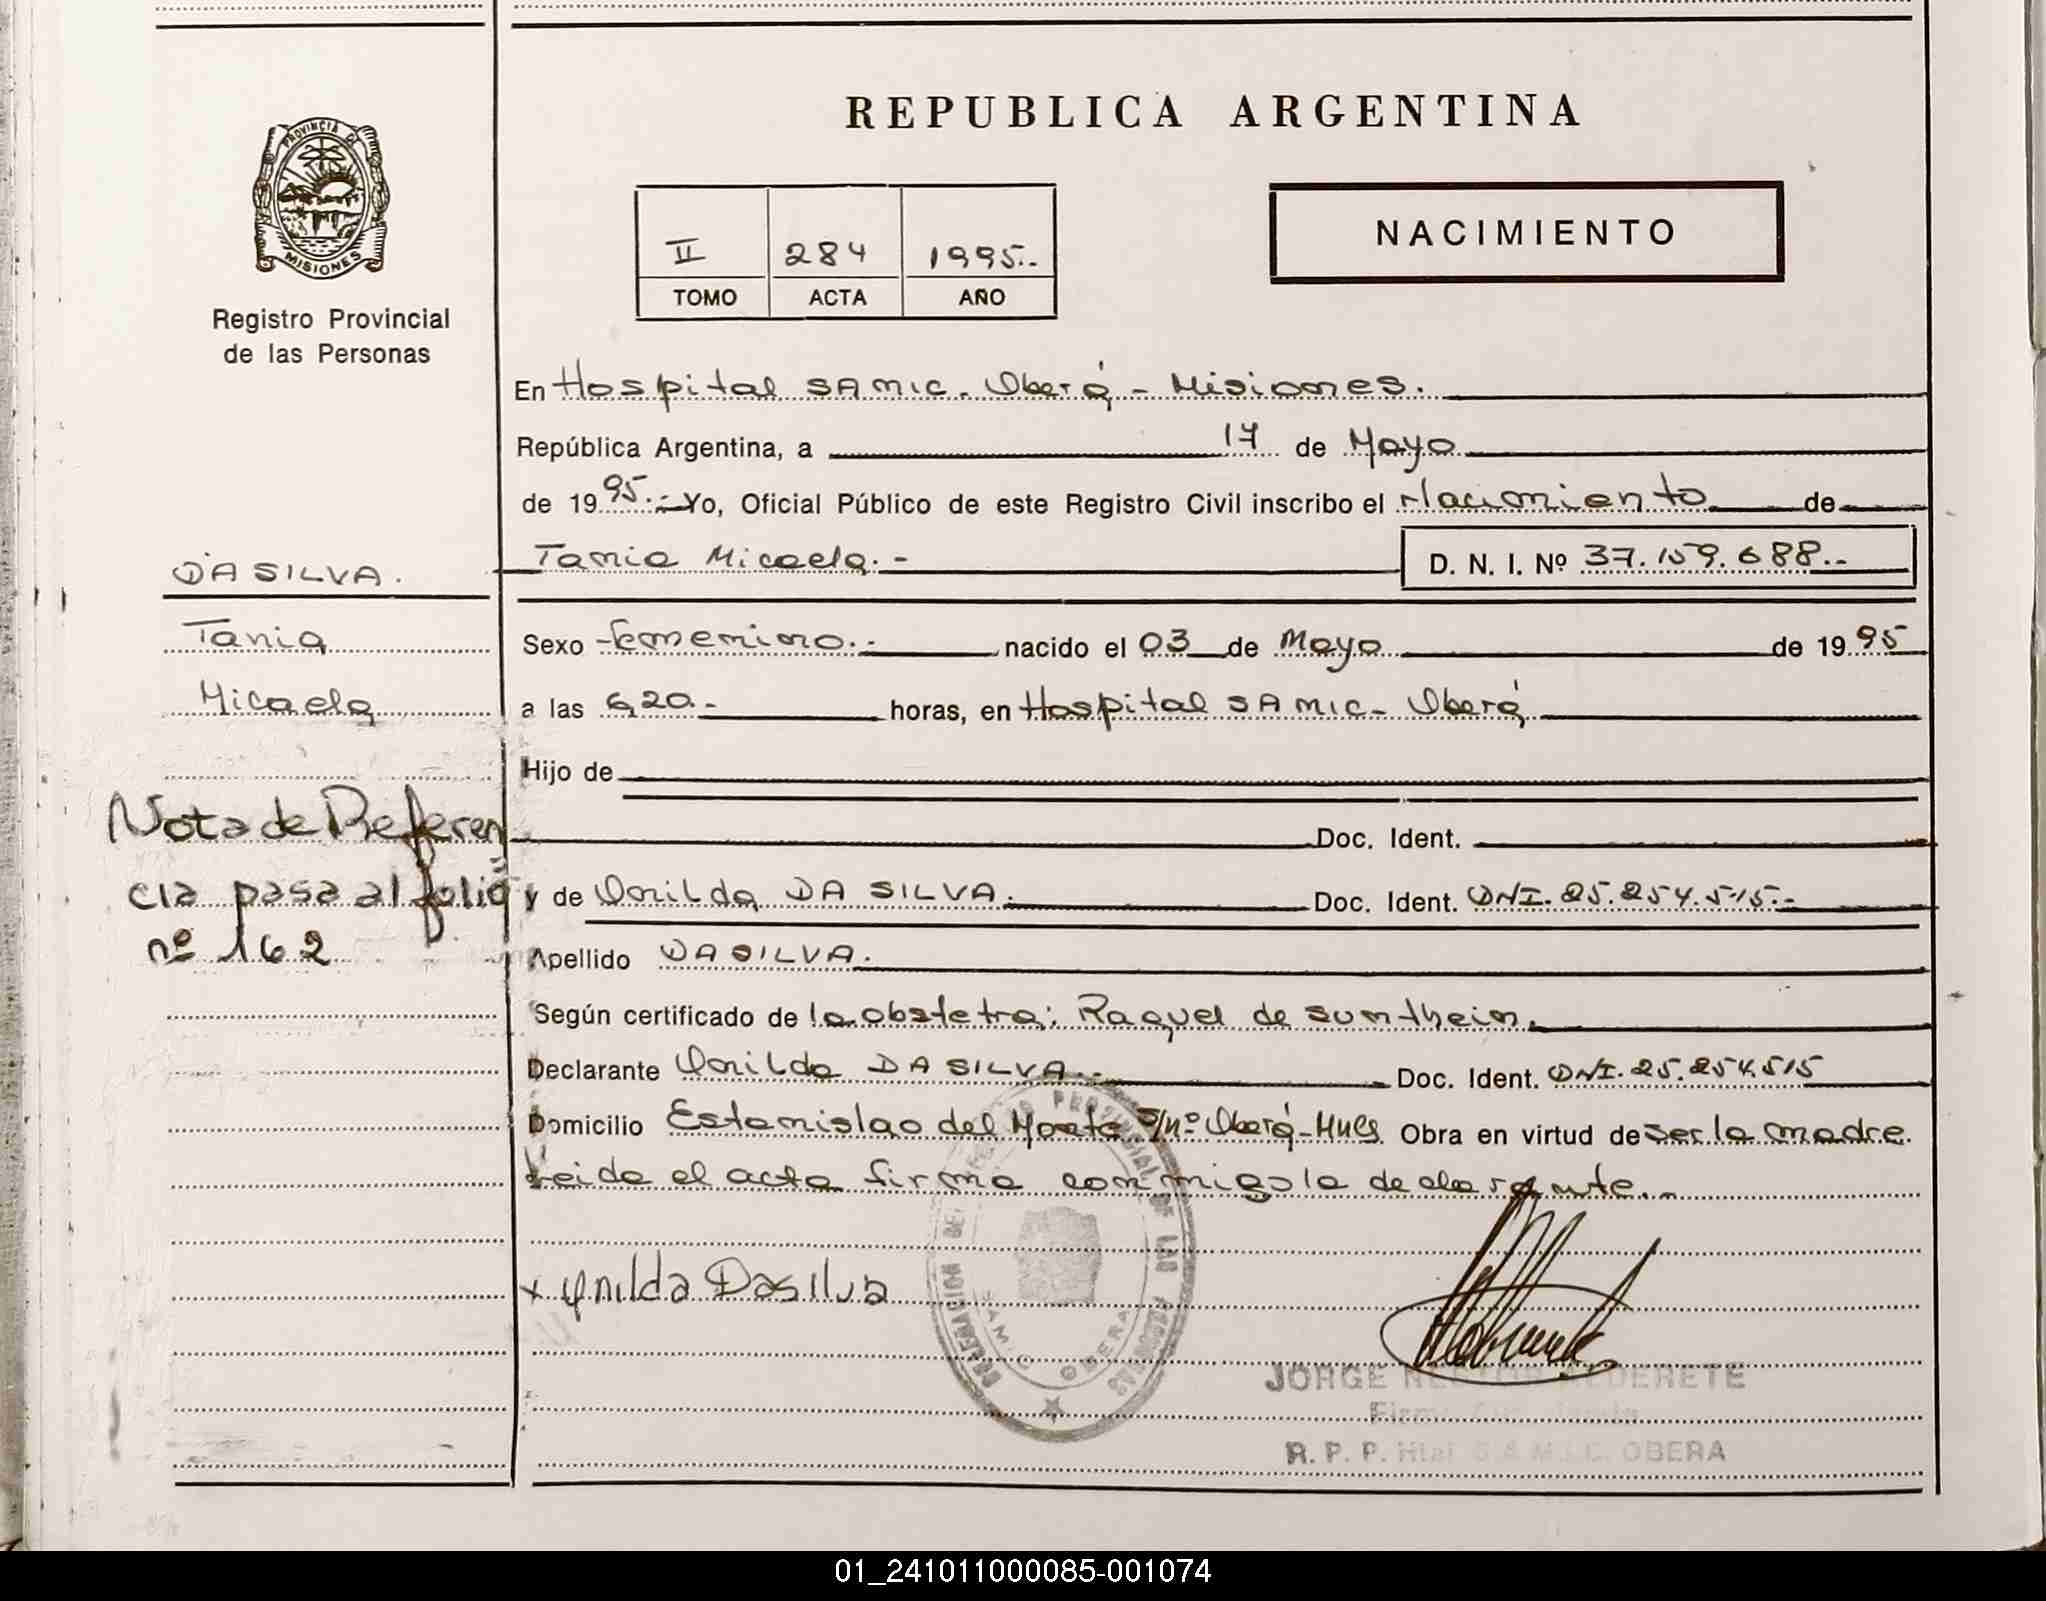 REPUBLICA ARGENTINA
PROVINCIA DE
MISIONES
Registro Provincial
de las Personas
II 284 1995.-
TOMO ACTA AÑO
NACIMIENTO
En Hospital SAMIC. Oberá - Misiones.
República Argentina, a 17 de Mayo
de 1995.- Yo, Oficial Público de este Registro Civil inscribo el Nacimiento de
Tania Micaela.- D. N. I. Nº 37.159.688.-
DA SILVA.
Tania
Micaela
Sexo Femenino.- nacido el 03 de Mayo de 1995
a las 6,20.- horas, en Hospital SAMIC- Oberá
Hijo de
Doc. Ident.
Nota de Referen
cia pasa al folio
nº 162
y de Onilda DA SILVA. Doc. Ident. DNI. 25.254.515.-
Apellido DA SILVA.
Según certificado de la obstetra: Raquel de Sumtheim.
Declarante Onilda DA SILVA.- Doc. Ident. DNI. 25.254.515
Domicilio Estanislao del Monte S/Nº Oberá-Mnes. Obra en virtud de ser la madre
Leida el acta firma conmigo la declarante..
x ynilda Dasilva
DELEGACION DEL REGISTRO PROVINCIAL DE LAS PERSONAS
SAMIC OBERA
JORGE NESTOR ALDERETE
Firma
R. P. P. Htal S.A.M.I.C. OBERA
01_241011000085-001074